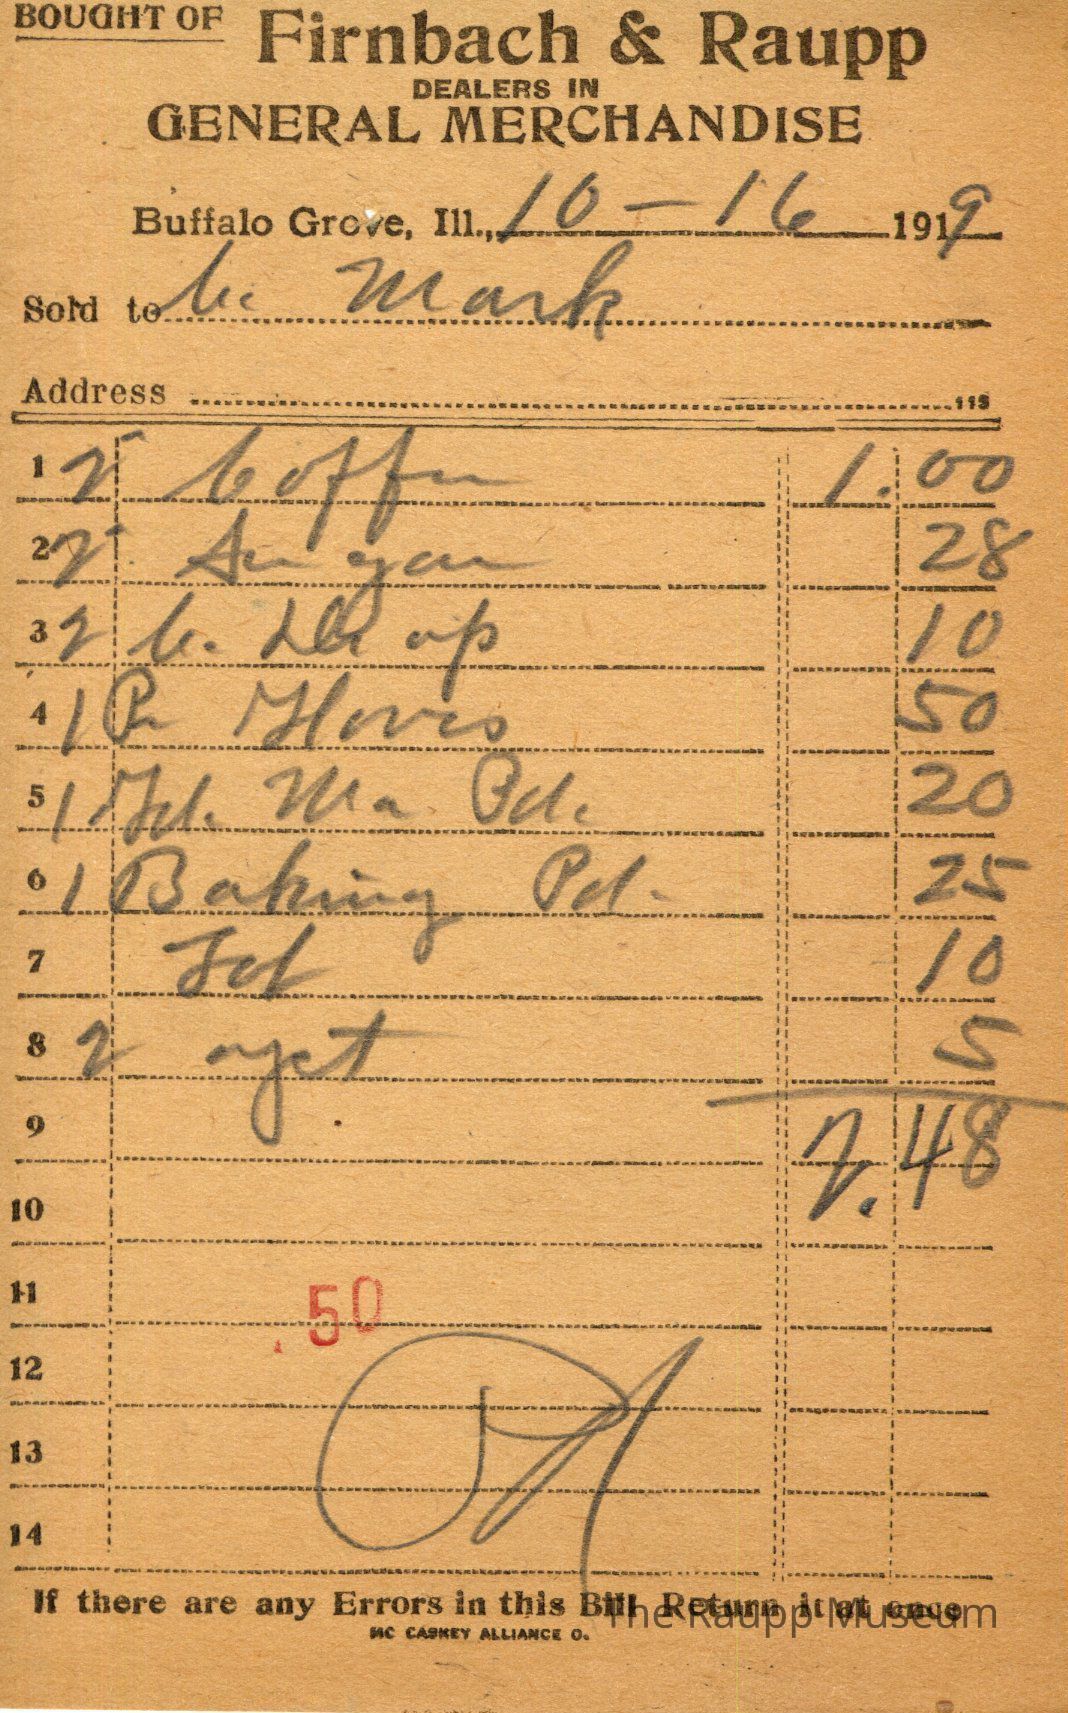 BOUGHT OF Firnbach & Raupp
DEALERS IN
GENERAL MERCHANDISE
Buffalo Grove, Ill., 10-16 1919
Sold to C. Mark
Address 115
1 2 Coffee 1.00
2 2 Sugar 28
3 2 C. Drop 10
4 1 Pr Gloves 50
5 1 Pd. 20
6 1 Baking Pd. 25
7 10
8 2 5
9 2.48
10
11
.50
12
13
14
If there are any Errors in this Bill Return it at once
The Raupp Museum
MC CASKEY ALLIANCE O.